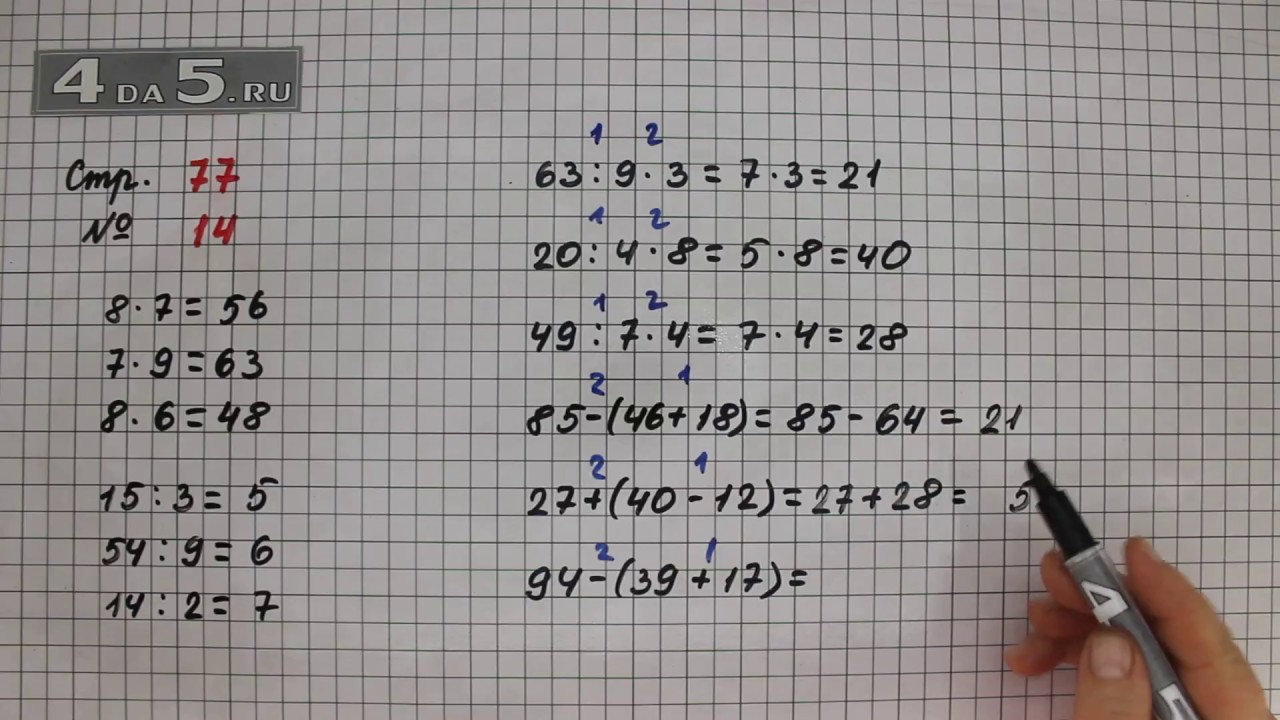 4DA5.RU
Стр. 77
№ 14
8 · 7 = 56
7 · 9 = 63
8 · 6 = 48
15 : 3 = 5
54 : 9 = 6
14 : 2 = 7
1 2
63 : 9 · 3 = 7 · 3 = 21
1 2
20 : 4 · 8 = 5 · 8 = 40
1 2
49 : 7 · 4 = 7 · 4 = 28
2 1
85 - (46 + 18) = 85 - 64 = 21
2 1
27 + (40 - 12) = 27 + 28 = 5
2 1
94 - (39 + 17) =